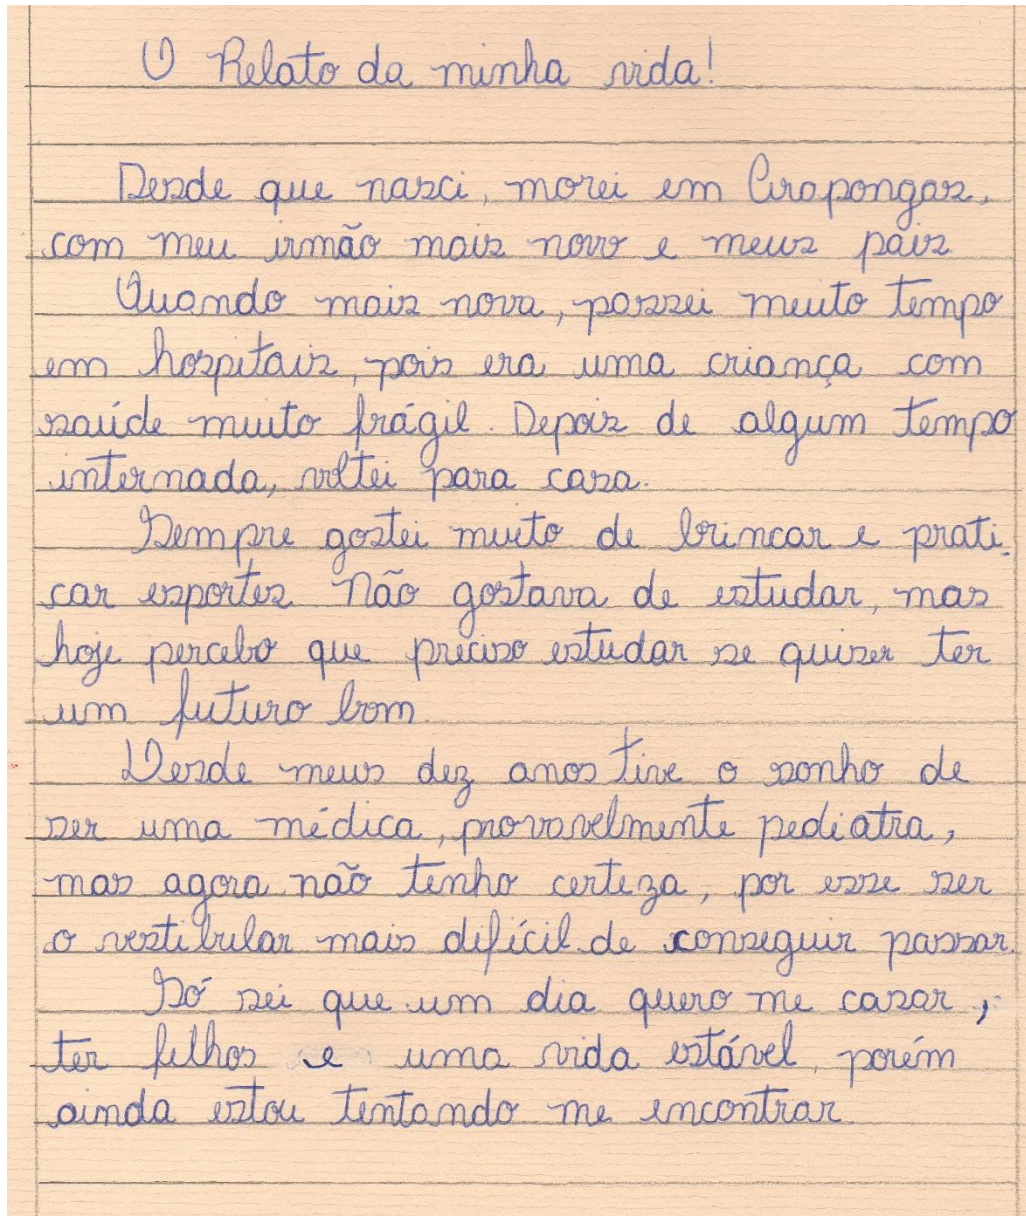 O Relato da minha vida!
Desde que nasci, morei em Arapongas,
com meu irmão mais novo e meus pais
Quando mais nova, passei muito tempo
em hospitais, pois era uma criança com
saúde muito frágil. Depois de algum tempo
internada, voltei para casa.
Sempre gostei muito de brincar e prati-
car esportes. Não gostava de estudar, mas
hoje percebo que preciso estudar se quiser ter
um futuro bom.
Desde meus dez anos tive o sonho de
ser uma médica, provavelmente pediatra,
mas agora não tenho certeza, por esse ser
o vestibular mais difícil de conseguir passar.
Só sei que um dia quero me casar,
ter filhos e uma vida estável, porém
ainda estou tentando me encontrar.